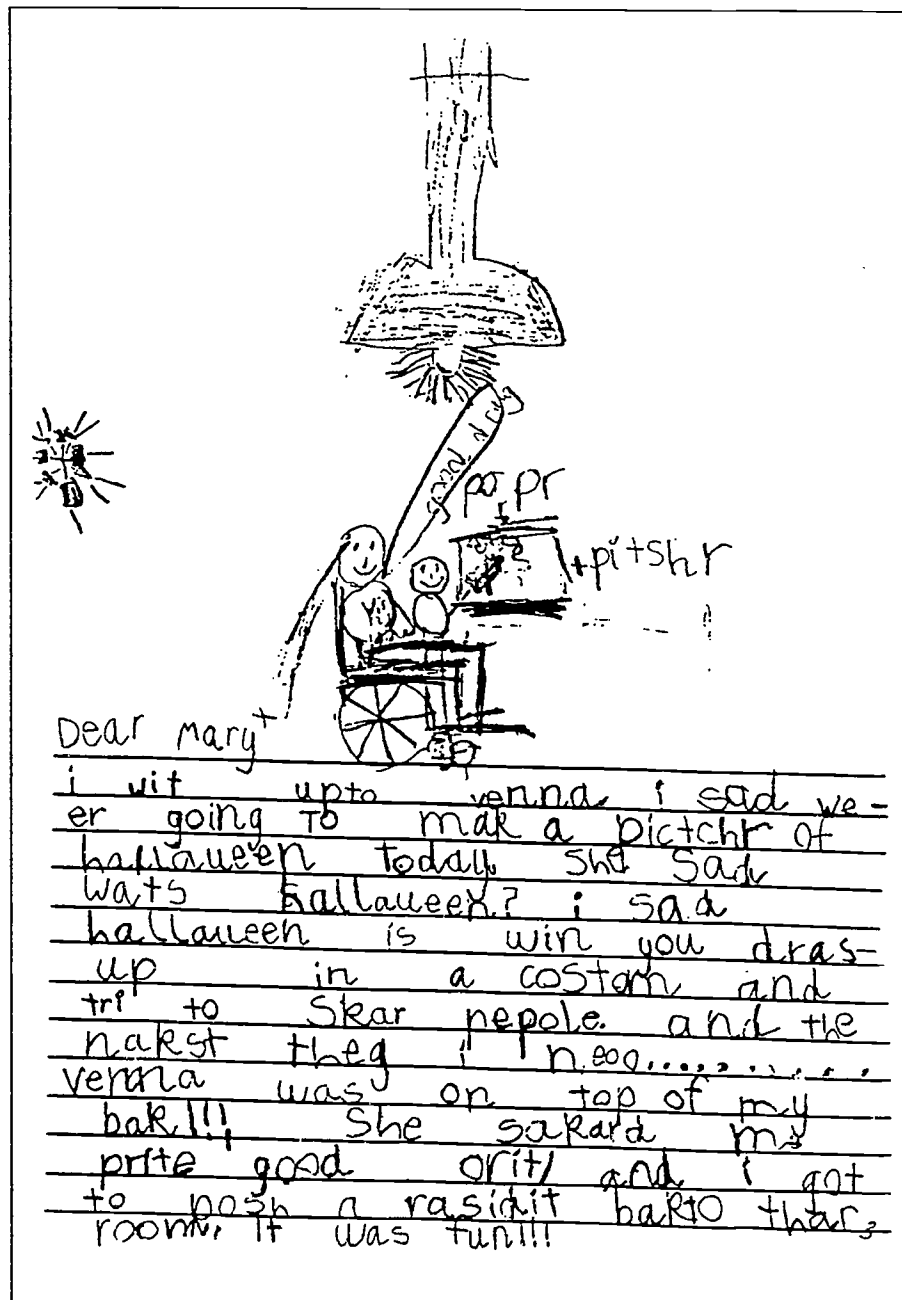 good drig
papr
pitshr
Dear Mary
i wit upto venna i sad we-
er going To mak a pictchr of
hallaueen today she sad
wats hallaueen? i sad
hallaueen is win you dras-
up in a costom and
tri to skar pepole. and the
nakst theg i neoo...........
venna was on top of my
bak!!! She sakard me
prite good orit/ and i got
to posh a rasidit bakto thar
room. It was fun!!!